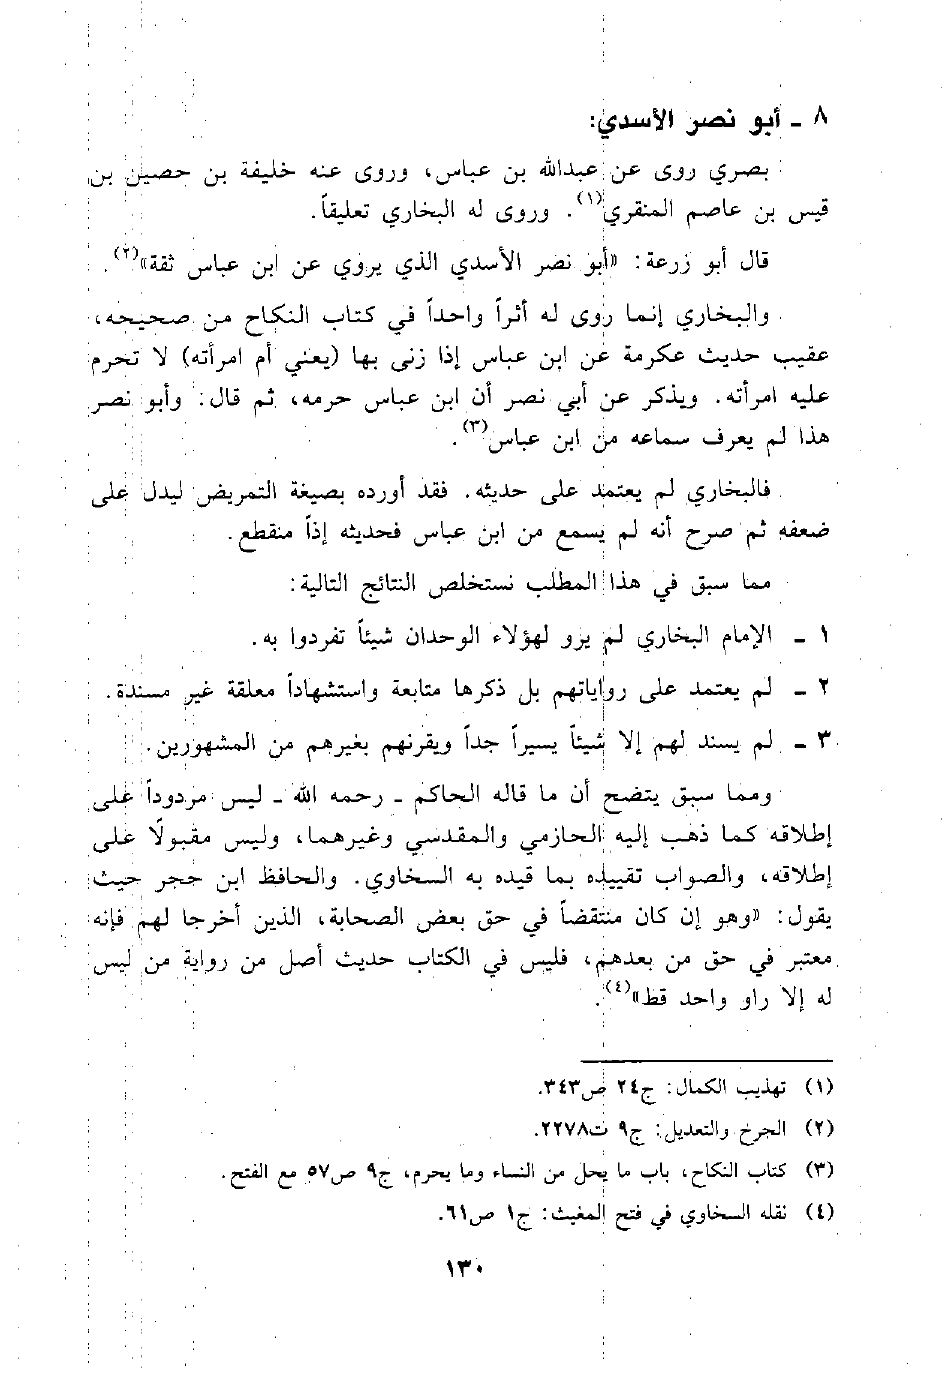 ٨ ـ أبو نصر الأسدي:
بصري روى عن عبدالله بن عباس، وروى عنه خليفة بن حصين بن
قيس بن عاصم المنقري(١). وروى له البخاري تعليقاً.
قال أبو زرعة: «أبو نصر الأسدي الذي يروي عن ابن عباس ثقة»(٢).
والبخاري إنما روى له أثراً واحداً في كتاب النكاح من صحيحه،
عقيب حديث عكرمة عن ابن عباس إذا زنى بها (يعني أم امرأته) لا تحرم
عليه امرأته. ويذكر عن أبي نصر أن ابن عباس حرمه، ثم قال: وأبو نصر
هذا لم يعرف سماعه من ابن عباس(٣).
فالبخاري لم يعتمد على حديثه. فقد أورده بصيغة التمريض ليدل على
ضعفه ثم صرح أنه لم يسمع من ابن عباس فحديثه إذاً منقطع.
مما سبق في هذا المطلب نستخلص النتائج التالية:
١ ـ الإمام البخاري لم يرو لهؤلاء الوحدان شيئاً تفردوا به.
٢ ـ لم يعتمد على رواياتهم بل ذكرها متابعة واستشهاداً معلقة غير مسندة.
٣ ـ لم يسند لهم إلا شيئاً يسيراً جداً ويقرنهم بغيرهم من المشهورين.
ومما سبق يتضح أن ما قاله الحاكم ـ رحمه الله ـ ليس مردوداً على
إطلاقه كما ذهب إليه الحازمي والمقدسي وغيرهما، وليس مقبولًا على
إطلاقه، والصواب تقييده بما قيده به السخاوي. والحافظ ابن حجر حيث
يقول: «وهو إن كان منتقضاً في حق بعض الصحابة، الذين أخرجا لهم فإنه
معتبر في حق من بعدهم، فليس في الكتاب حديث أصل من رواية من ليس
له إلا راو واحد قط»(٤).
(١) تهذيب الكمال: ج٢٤ ص٣٤٣.
(٢) الجرح والتعديل: ج٩ ت٢٢٧٨.
(٣) كتاب النكاح، باب ما يحل من النساء وما يحرم، ج٩ ص٥٧ مع الفتح.
(٤) نقله السخاوي في فتح المغيث: ج١ ص٦١.
١٣٠